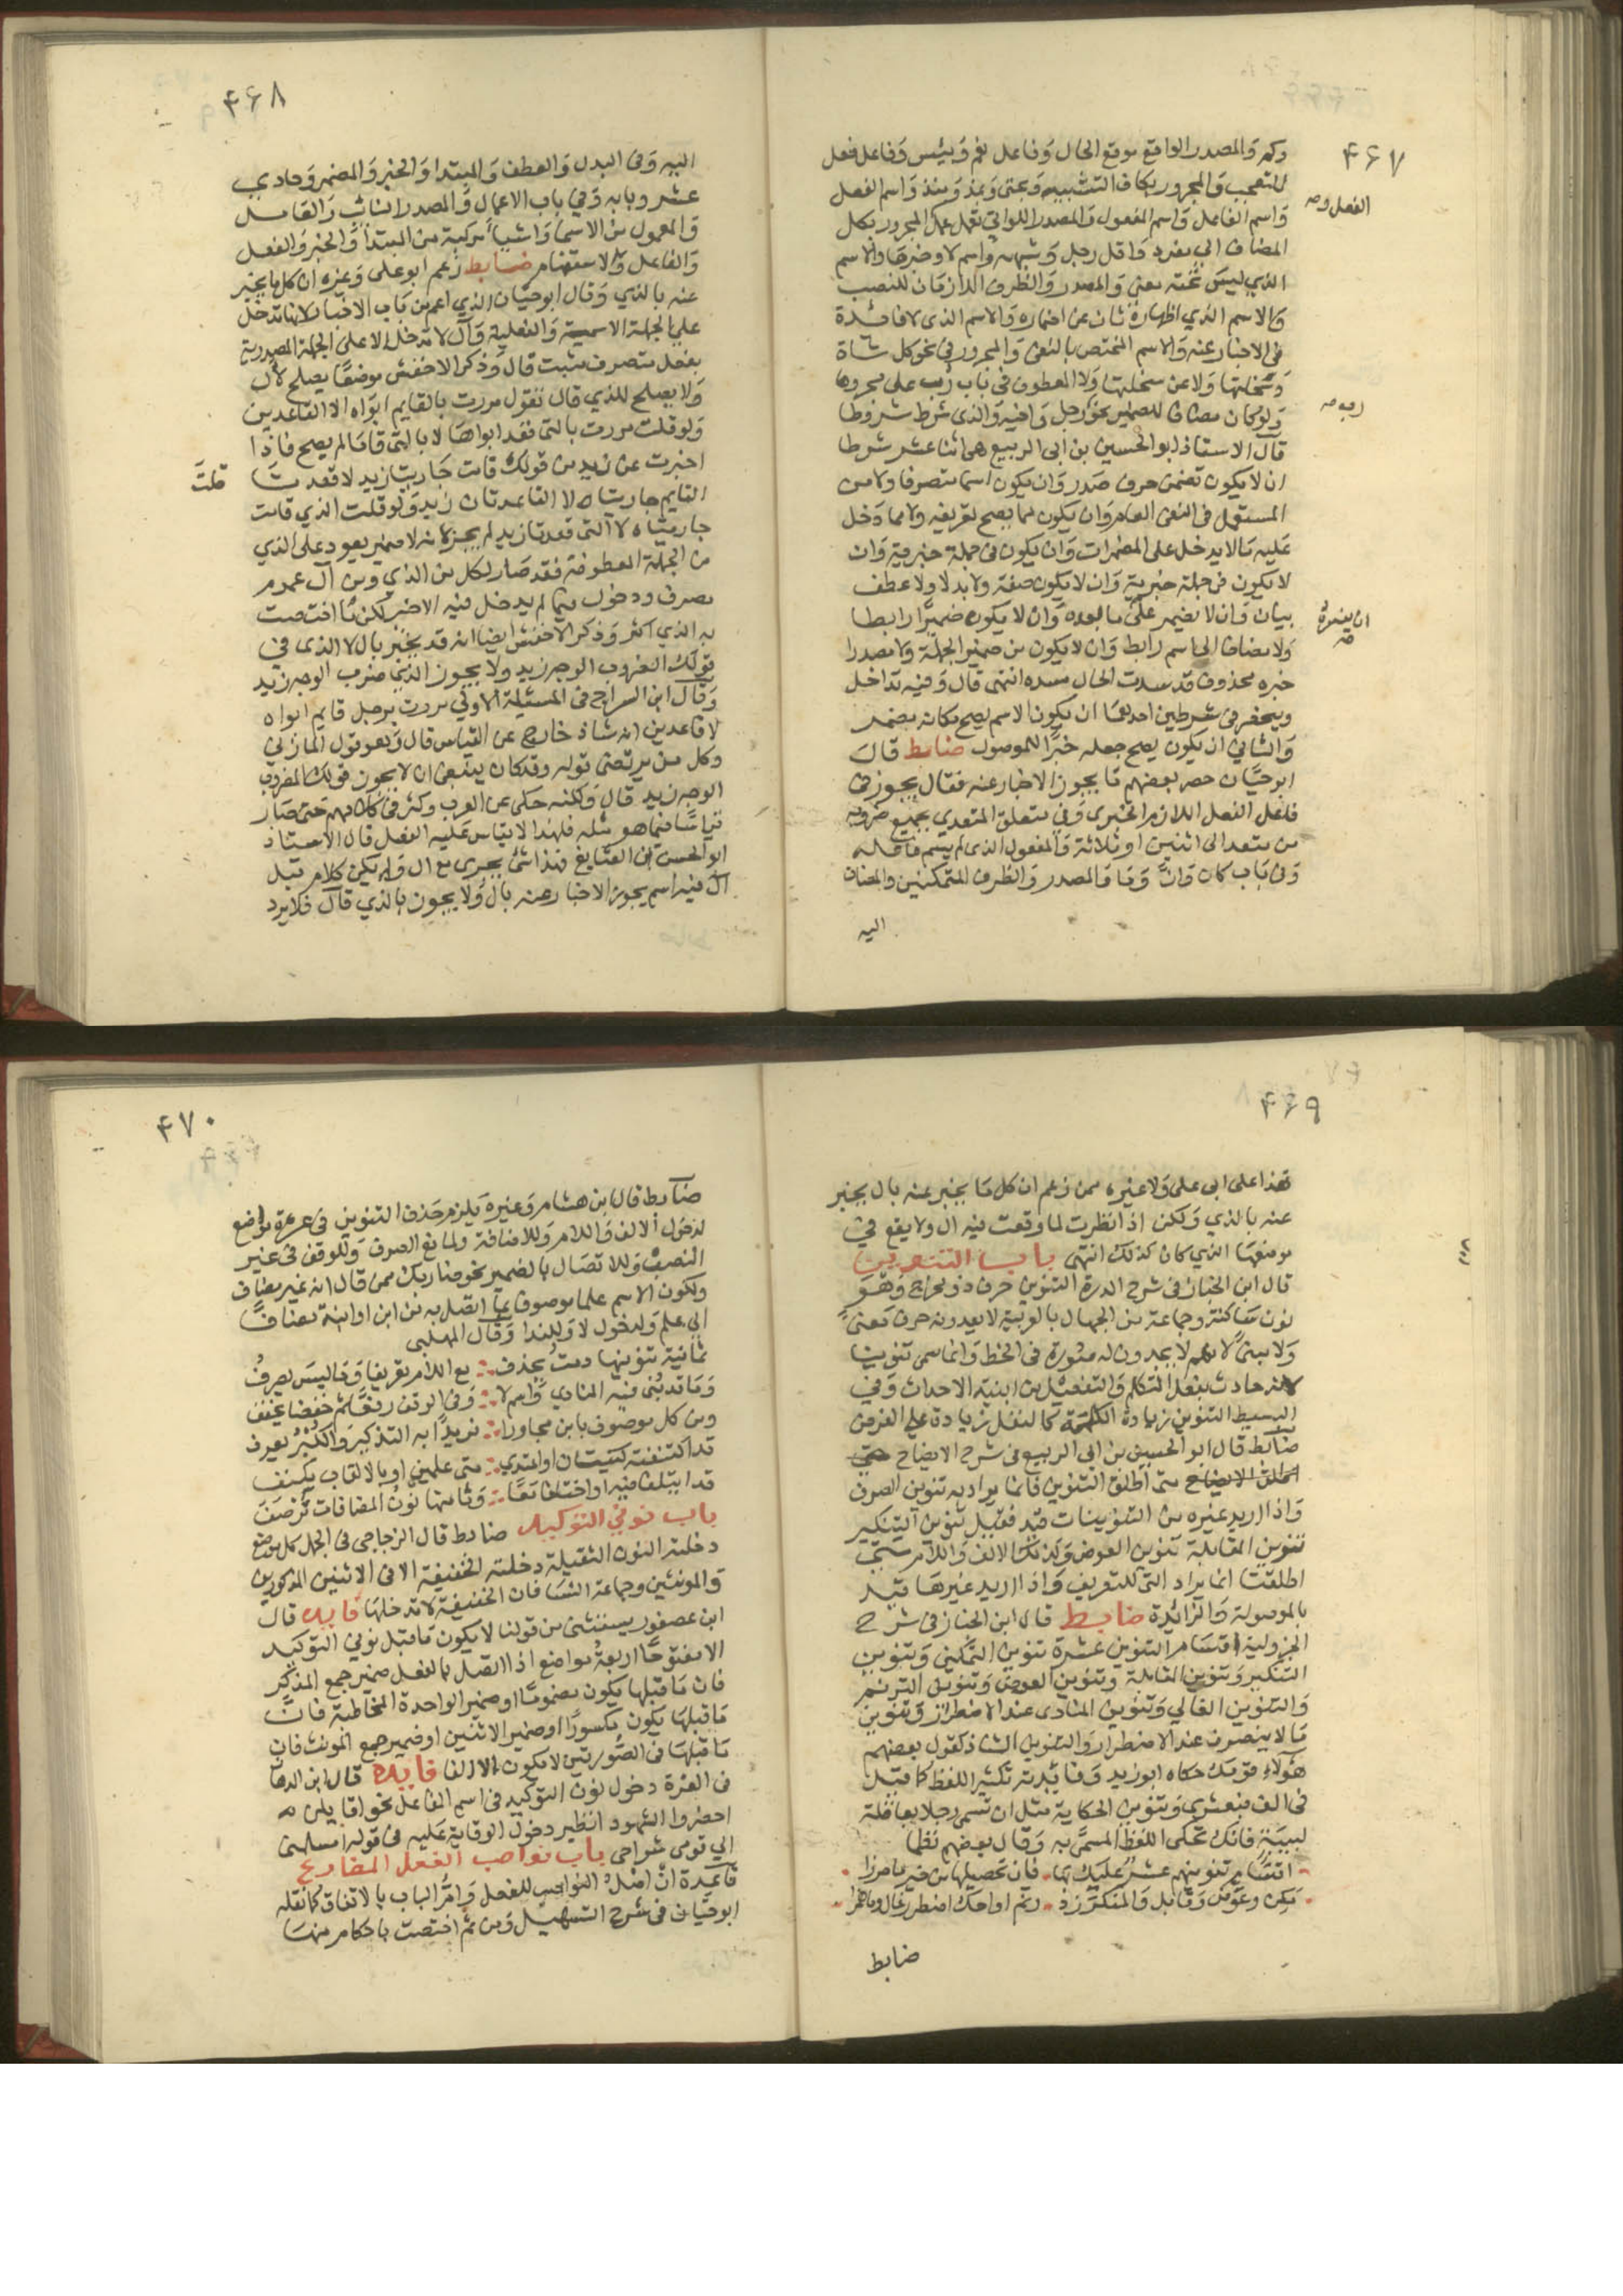 ۴۶۷
وكم والمصدر الواقع موقع الحال وفاعل نعم وبئس وفاعل فعل
التعجب والمجرور بكاف التشبيه وبحتى وبمذ ومنذ واسم الفعل
الفعل وصه
واسم الفاعل واسم المفعول والمصدر اللواتي تعمل عمل المجرور بكل
المضاف الى مفرد واقل رجل وشبهه واسم لا وخبرها والاسم
الذي ليس تحته معنى والمصدر والظرف اللازمان للنصب
والاسم الذي اظهاره ثان عن اضماره والاسم الذى لا فائدة
فى الاخبار عنه والاسم المختص بالنفى والمجرور في نحو كل شاة
وسخلتها ولا عن سخلتها ولا المعطوف فى باب رب على مجرورها
رب صه
ولو كان مضافا للضمير نحو رجل واخيه والذى شرط شروطا
قال الاستاذ ابو الحسين بن ابى الربيع هى اثنا عشر شرطا
ان لا يكون تضمن حرف صدر وان يكون اسما متصرفا ولا من
المستعمل فى النفى العام وان يكون مما يصح تعريفه ولا مما دخل
عليه ما لا يدخل على المضمرات وان يكون فى جملة خبرية وان
لا يكون فى جملة خبرية وان لا يكون صفة ولا بدلا ولا عطف
بيان وان لا يضمر على ما بعده وان لا يكون ضميرا رابطا
ولا مضافا الى اسم رابط وان لا يكون من ضمير الجملة ولا مصدرا
خبره محذوف قد سدت الحال مسده انتهى قال وفيه تداخل
وينحصر فى شرطين احدهما ان يكون الاسم يصح مكانه مضمر
والثانى ان يكون يصح جعله خبرا للموصول ضابط قال
ابو حيان حصر بعضهم ما يجوز الاخبار عنه فقال يجوز فى
فاعل الفعل اللازم الخبرى وفي متعلق المتعدي بجميع ضروبه
من متعد الى اثنين او ثلاثة والمفعول الذى لم يسم فاعله
وفى باب كان وان وما والمصدر والظرف المتمكنين والمضاف
اليه
۴۶۸
اليه وفى البدل والعطف والمبتدا والخبر والمضمر وحادي
عشر وبابه وفي باب الاعمال والمصدر النائب والعامل
والمعمول من الاسما واشيا مركبة من المبتدا والخبر والفعل
والفاعل والاستفهام ضابط زعم ابو على وغيره ان كل ما يخبر
عنه بالذي وقال ابو حيان الذي اعم من باب الاخبار لانها تدخل
على الجملة الاسمية والفعلية وال لا تدخل الا على الجملة المصدرة
بفعل متصرف مثبت قال وذكر الاخفش موضعا يصلح لال
ولا يصلح للذي قال تقول مررت بالقايم ابواه لا القاعدين
ولو قلت مررت بالتى قعد ابواها لا بالتى قاما لم يصح فاذا
اخبرت عن زيد من قولك قامت جاريتا زيد لا قعدتا قلت
القايم جاريتاه لا القاعدتان زيد ولو قلت الذي قامت
جاريتاه لا التى قعدتا زيد لم يجز لانه لا ضمير يعود على الذي
من الجملة المعطوفة فقد صار لكل من الذي ومن ال عموم
تصرف ودخول فيما لم يدخل فيه الاخر لكن ما اختصت
به الذي اكثر وذكر الاخفش ايضا انه قد يخبر بال لا الذى في
قولك المضروب الوجه زيد ولا يجوز الذي ضرب الوجه زيد
وقال ابن السراج فى المسئلة الاولى مررت برجل قايم ابواه
لا قاعدين انه شاذ خارج عن القياس قال وهو قول المازني
وكل من يرتضى قوله وقد كان ينبغى ان لا يجوز قولك المضروب
الوجه زيد قال ولكنه حكى عن العرب وكثر فى كلامهم حتى صار
قياسا فيما هو مثله فلهذا لا يقاس عليه الفعل قال الاستاذ
ابو الحسن بن الضايع فهذا شى يجرى مع ال وله يكن كلام قبل
ال فيه اسم يجوز الاخبار عنه بال ولا يجوز بالذي قال فلا يرد
۴۶۹
هذا على ابى على ولا غيره ممن زعم ان كل ما يخبر عنه بال يخبر
عنه بالذي ولكن اذا نظرت لما وقعت فيه ال ولا يقع في
موضعها الذي كان كذلك انتهى باب التنوين
قال ابن الخباز فى شرح الدرة التنوين حرف ذو مخرج وهو
نون ساكنة وجماعة من الجهال بالعربية لا يعدونه حرف معنى
ولا مبنى لانهم لا يجدون له صورة فى الخط وانما سمى تنوينا
لانه حادث بفعل المتكلم والتفعيل من ابنية الاحداث وفي
البسيط التنوين زيادة على الكلمة كما النفل زيادة على الفرض
ضابط قال ابو الحسين بن ابى الربيع فى شرح الايضاح
متى اطلق التنوين فانما يراد به تنوين الصرف
واذا اريد غيره من التنوينات قيد فقيل تنوين التنكير
تنوين المقابلة تنوين العوض وكذلك الالف واللام متى
اطلقتا انما يراد التى للتعريف واذا اريد غيرها قيد
بالموصولة والزائدة ضابط قال ابن الخباز فى شرح
الجزولية اقسام التنوين عشرة تنوين التمكين وتنوين
التنكير وتنوين المقابلة وتنوين العوض وتنوين الترنم
والتنوين الغالي وتنوين المنادى عند الاضطرار وتنوين
ما لا ينصرف عند الاضطرار والتنوين الشاذ كقول بعضهم
هؤلاء قومك حكاه ابو زيد وفائدته تكثير اللفظ كما قيل
فى الف قبعثرى وتنوين الحكاية مثل ان تسمى رجلا بعاقلة
لبيبة فانك تحكى اللفظ المسمى به وقال بعضهم نظما
اقسام تنوينهم عشر عليك بها فان تحصيلها من خير ما حرزا
مكن وعوض وقابل والمنكر زد رنم او احك اضطرر غال وما همزا
ضابط
۴۷۰
ضابط قال ابن هشام وغيره يلزم حذف التنوين فى عشرة مواضع
لدخول الالف واللام وللاضافة ولمانع الصرف وللوقف فى غير
النصب وللاتصال بالضمير نحو ضاربك ممن قال انه غير مضاف
ولكون الاسم علما موصوفا بما اتصل به من ابن او ابنة مضافا
الى علم ولدخول لا وللندا وقال المهلبى
ثمانية تنوينها دمت يحذف مع اللام تعريفا وما ليس يصرف
وما قد بنى فيه المنادي واسم لا وفى الوقف رفعا ثم خفضا يخفف
ومن كل موصوف بابن مجاورا فريدا به التذكير والكبر يعرف
قد اكتنفته كنيتان او اغتدى متى علمين او بالالقاب يكنف
قد ايتلفا فيه او اختلفا معا وثامنها نون المضافات ترصف
باب نوني التوكيد ضابط قال الزجاجى فى الجمل كل موضع
دخلته النون الثقيلة دخلته الخفيفة الا فى الاثنين المذكورين
والمونثين وجماعة النسا فان الخفيفة لا تدخلها فايده قال
ابن عصفور يستثنى من قولنا لا يكون ما قبل نوني التوكيد
الا مفتوحا اربعة مواضع اذا اتصل بالفعل ضمير جمع المذكر
فان ما قبلها يكون مضموما او ضمير الواحدة المخاطبة فان
ما قبلها يكون مكسورا او ضمير الاثنين او ضمير جمع المونث فان
ما قبلها فى الصورتين لا يكون الا الفا فايده قال ابن الدهان
فى الغرة دخول نون التوكيد فى اسم الفاعل نحو اقايلن
احضروا الشهود انظير دخول الوقاية عليه فى قوله امسلمنى
الى قومى شراحى باب نواصب الفعل المضارع
قاعدة ان اصل النواصب للفعل وام الباب بالاتفاق كما نقله
ابو حيان فى شرح التسهيل ومن ثم اختصت باحكام منها